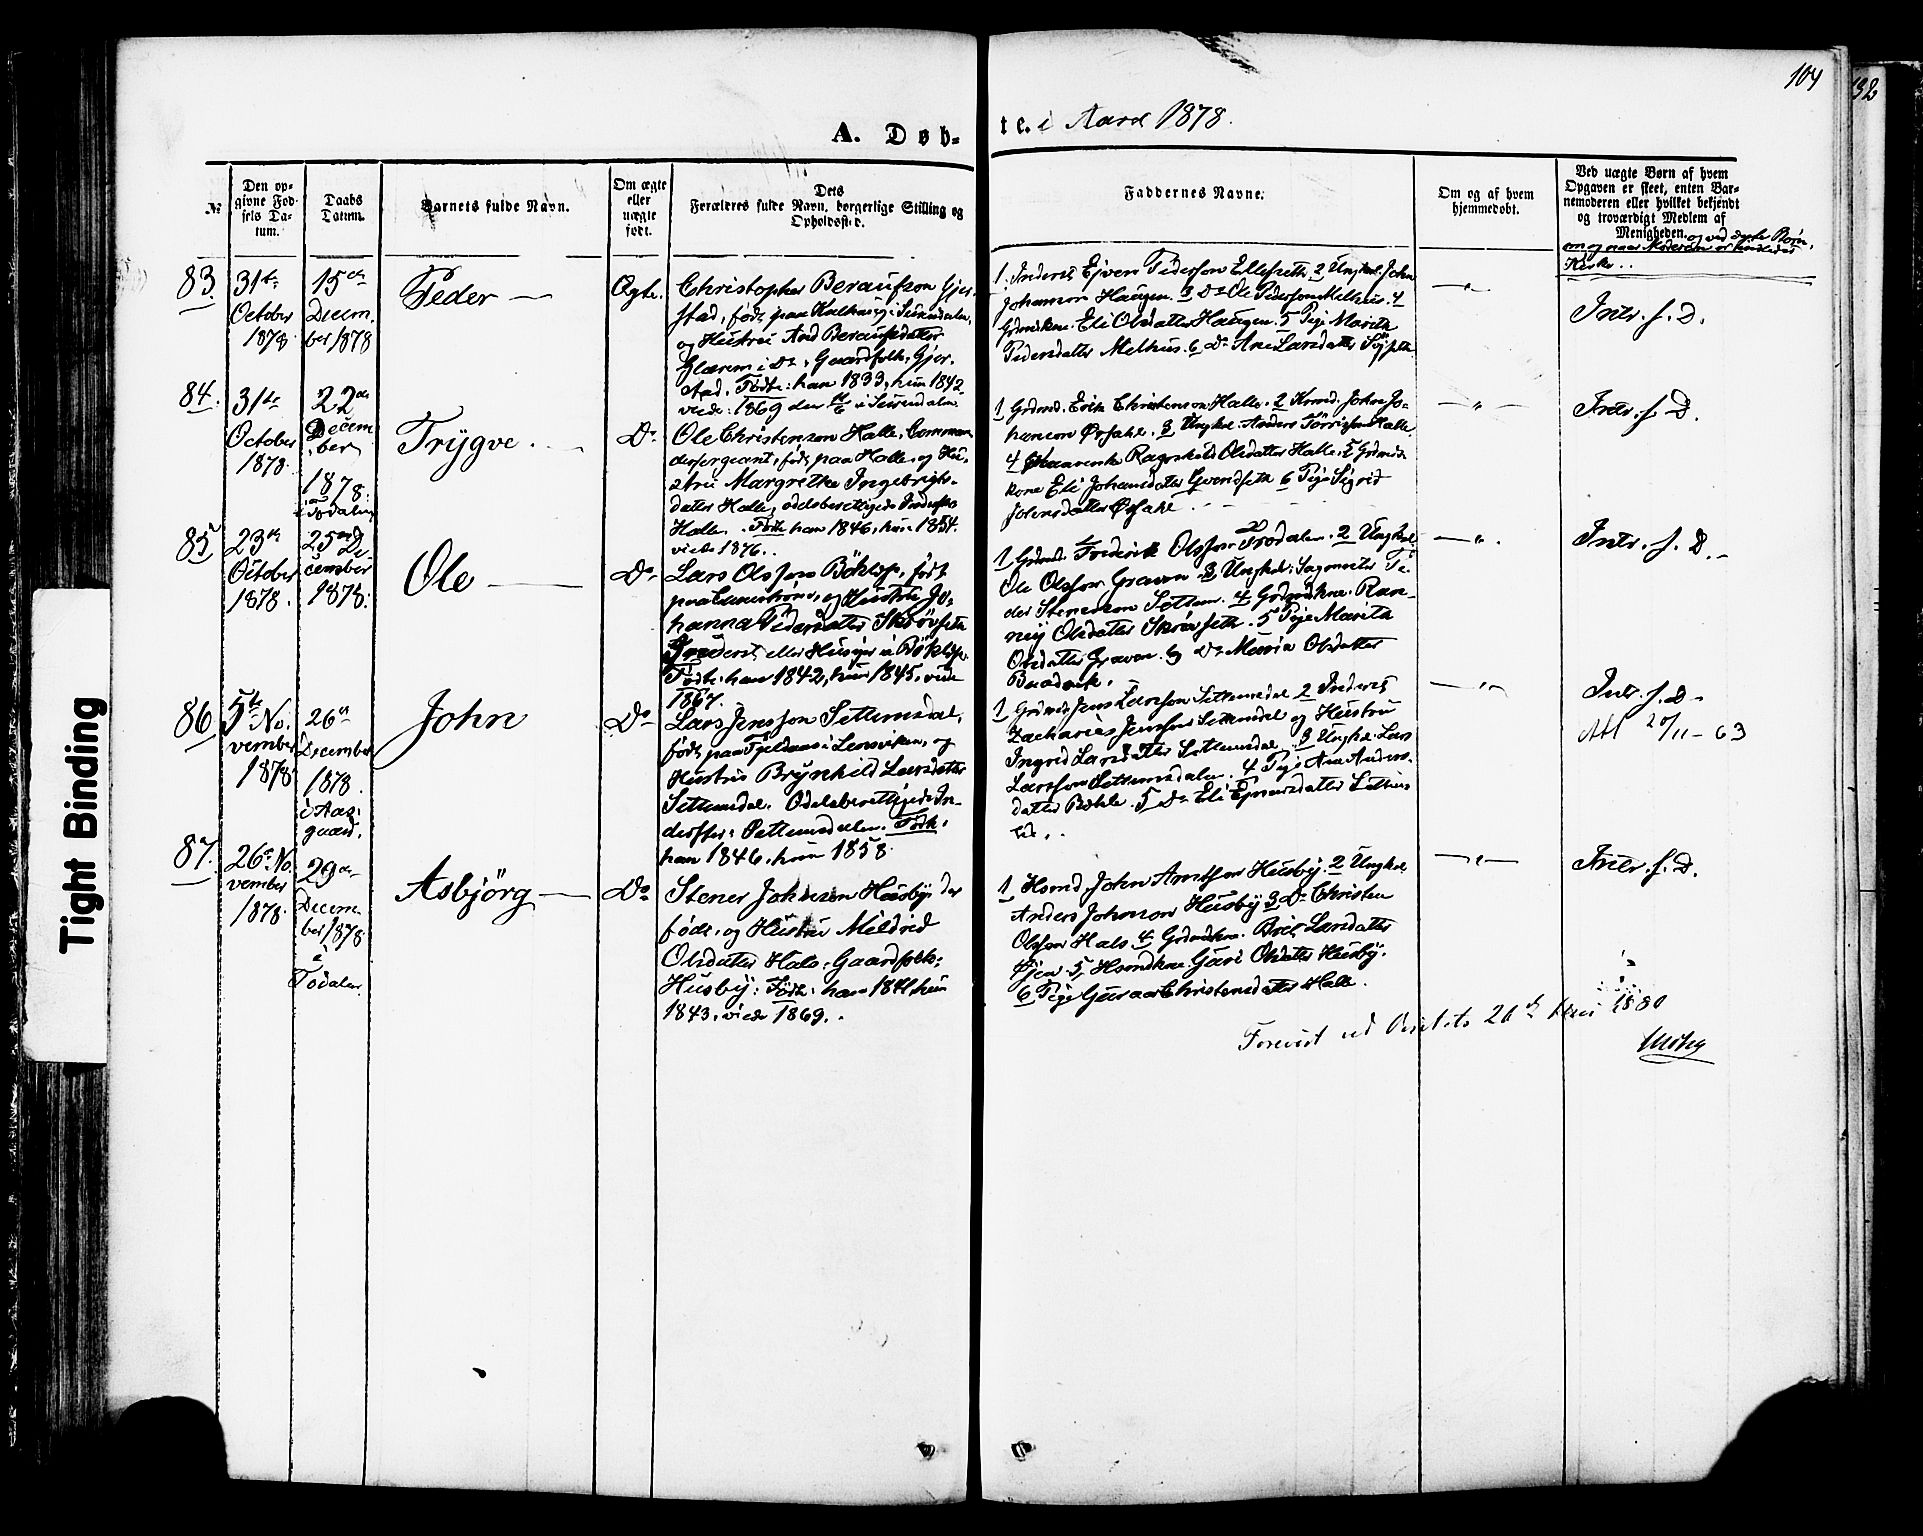 104
132
A. Døb-
te. i Aaret 1878.
№
Den op-
givne Fød-
sels Da-
tum.
Daabs
Datum.
Barnets fulde Navn.
Om ægte
eller
uægte
født.
Dets
Forældres fulde Navn, borgerlige Stilling og
Opholdssted.
Faddernes Navne.
Om og af hvem
hjemmedøbt.
Ved uægte Børn af hvem
Opgaven er skeet, enten Bar-
nemoderen eller hvilket bekjendt
og troværdigt Medlem af
Menigheden. og ved ægte Børn,
om og naar Moderen er
Kirke..
83
31te
October
1878
15de
Decem-
ber 1878
Peder
Ægte.
Christopher Beraufson Gjer-
stad, født paa Kalhaug i Surendalen,
og Hustru And Beraufsdatter
Glærem i Do, Gaardfolk, Gjer-
stad. Fødte: han 1833, hun 1842
viede: 1869 den i Surendalen
1. Inderst Ejven Pederson Ellefseth 2 Ungkal. John
Johanson Haugen. 3 Do Ole Pederson Melhus. 4
Grdmdkone. Eli Olsdatter Haugen. 5 Pige Marith
Pedersdatter Melhus. 6 Do Ane Larsdatter
—"—
Intr. f. D.
84.
31te
October
1878.
22de
Decem-
ber
1878.
i Todalen
Trÿgve.
Do
Ole Christenson Halle, Comman-
dersergeant, født paa Halle, og Hu-
stru Margrethe Ingebrigts-
datter Halle, odelsberettigede
Halle. Fødte han 1846, hun 1854.
viede 1876.
1 Grdmd. Erik Christenson Halle. 2 Kmd. John Jo-
hanson Ørsahl. 3 Ungkal. Anders Halle.
4 Ragnhild Olsdatter Halle. 5 Grdmds
kone Eli Johansdatter Qvendseth 6 Pige Sigrid
Johnsdatter Ørsahl.
—"—
Intr. f. D.
85
23de
October
1878.
25de De-
cember
1878.
Ole
Do
Lars Olsson Bøklep, født
paa og Hustru Jo-
hanna Pedersdatter Skrøvseth
Inderst, eller Husmand i Bøklep
Fødte: han 1842, hun 1845, viede
1867.
1 Grdmd. Frederik Olsson Frodalen. 2 Ungkal.
Ole Olsson Graven. 3 Ungkal: Sagmester Pe-
der Stenerson Settem. 4 Grdmdkne. Ran-
nej Olsdatter Skrøvseth. 5 Pige Marith
Olsdatter Graven. 6 Do Maria Olsdatter
Baadvik.
—"—
Intr. f. D.
86
5te No-
vember
1878
26de
December
1878.
i Aas-
gaard.
John
Do
Lars Jensson Settemsdal,
født paa Fjeldaas i Lensviken, og
Hustru Brynhild Larsdatter
Settemsdal. Odelsberettigede In-
derster. Settemsdalen. Fødte:
han 1846, hun 1858.
1 Grdmd. Jens Larsson Settemsdal 2 Inderst
Zacharias Jensson Settemsdal og Hustru
Ingrid Larsdatter Settemsdal. 3 Ungkal. Lars
Larsson Settemsdalen. 4 Pige Ane Anders-
datter Bøhle. 5 Do Eli Ejnarsdatter
—"—
Intr. f. D.
Att 20/11-63
87.
26de No-
vember
1878.
29de
Decem-
ber 1878
i
Todalen.
Asbjörg
Do
Stener Johnson Husbÿ, der
født, og Hustru Mildrid
Olsdatter Hals, Gaardfolk,
Husbÿ: Fødte: han 1841 hun
1843, viede 1869.
1 Hsmd. John Arntson Husbÿ. 2 Ungkal.
Anders Johnson Husbÿ 3 Do Christen
Olsson Hals 4 Grdmdkne. Brit Larsdatter
Øjen. 5 Hsmdkne Guri Olsdatter Husbÿ.
6 Pige Guri Christensdatter Halle.
—"—
Intr. f. D.
Forevist ved Visitats 20de 1880